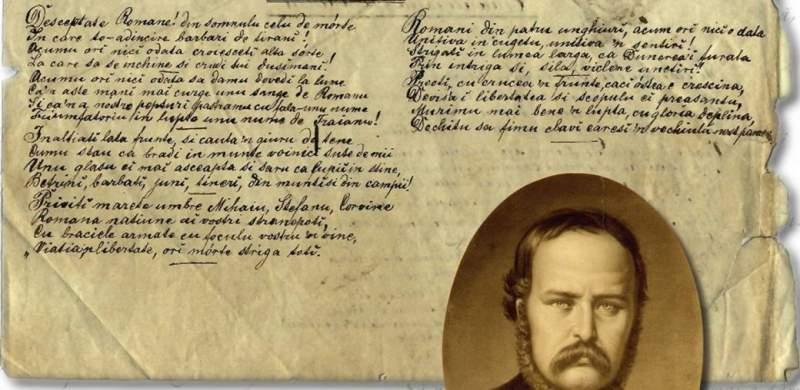 Desceptate Romane! din somnulu celu de morte
In care te-adincire barbari de tirani!
Acumu ori nici odata croiesceti alta sorte
La care sa se inchine si crudi tui dusimani!
Acumu ori nici odata sa damu dovedi la lume
Ca'n aste mani mai curge unu sange de Romanu
Si ca'n a nostre pepturi pastramu cu fala-unu nume
Triumfatoriu in lupte unu nume de Traianu!
Inaltiati lata frunte, si cauta'n giuru de tene
Cumu stau ca bradi in munte voinici sute de mii
Unu glasu ei mai ascepta si saru ca lupii in stine,
Betrini, barbati, juni, tineri, din muntisi din campii!
Priviti marete umbre Mihaiu, Stefanu, Corvine
Romana natiune ai vostri stranepoti,
Cu braciele armate cu foculu vostru'n vine,
„Viatia'n libertate, ori morte striga toti.
Romani din patru unghiuri, acum ori nici o data
Uniti-va in cugetu, uniti-va 'n sentiri!
Strigati in lumea larga, ca Dunerea-i furata
Prin intriga si, sila, viclene uneltiri!
Preoti, cu crucea 'n frunte, caci ostea e crescina,
Devisa-i libertatea si scopulu ei preasantu,
Murimu mai bene 'n lupta, cu gloria deplina,
Dechitu sa fimu sclavi earesi 'n vechiulu